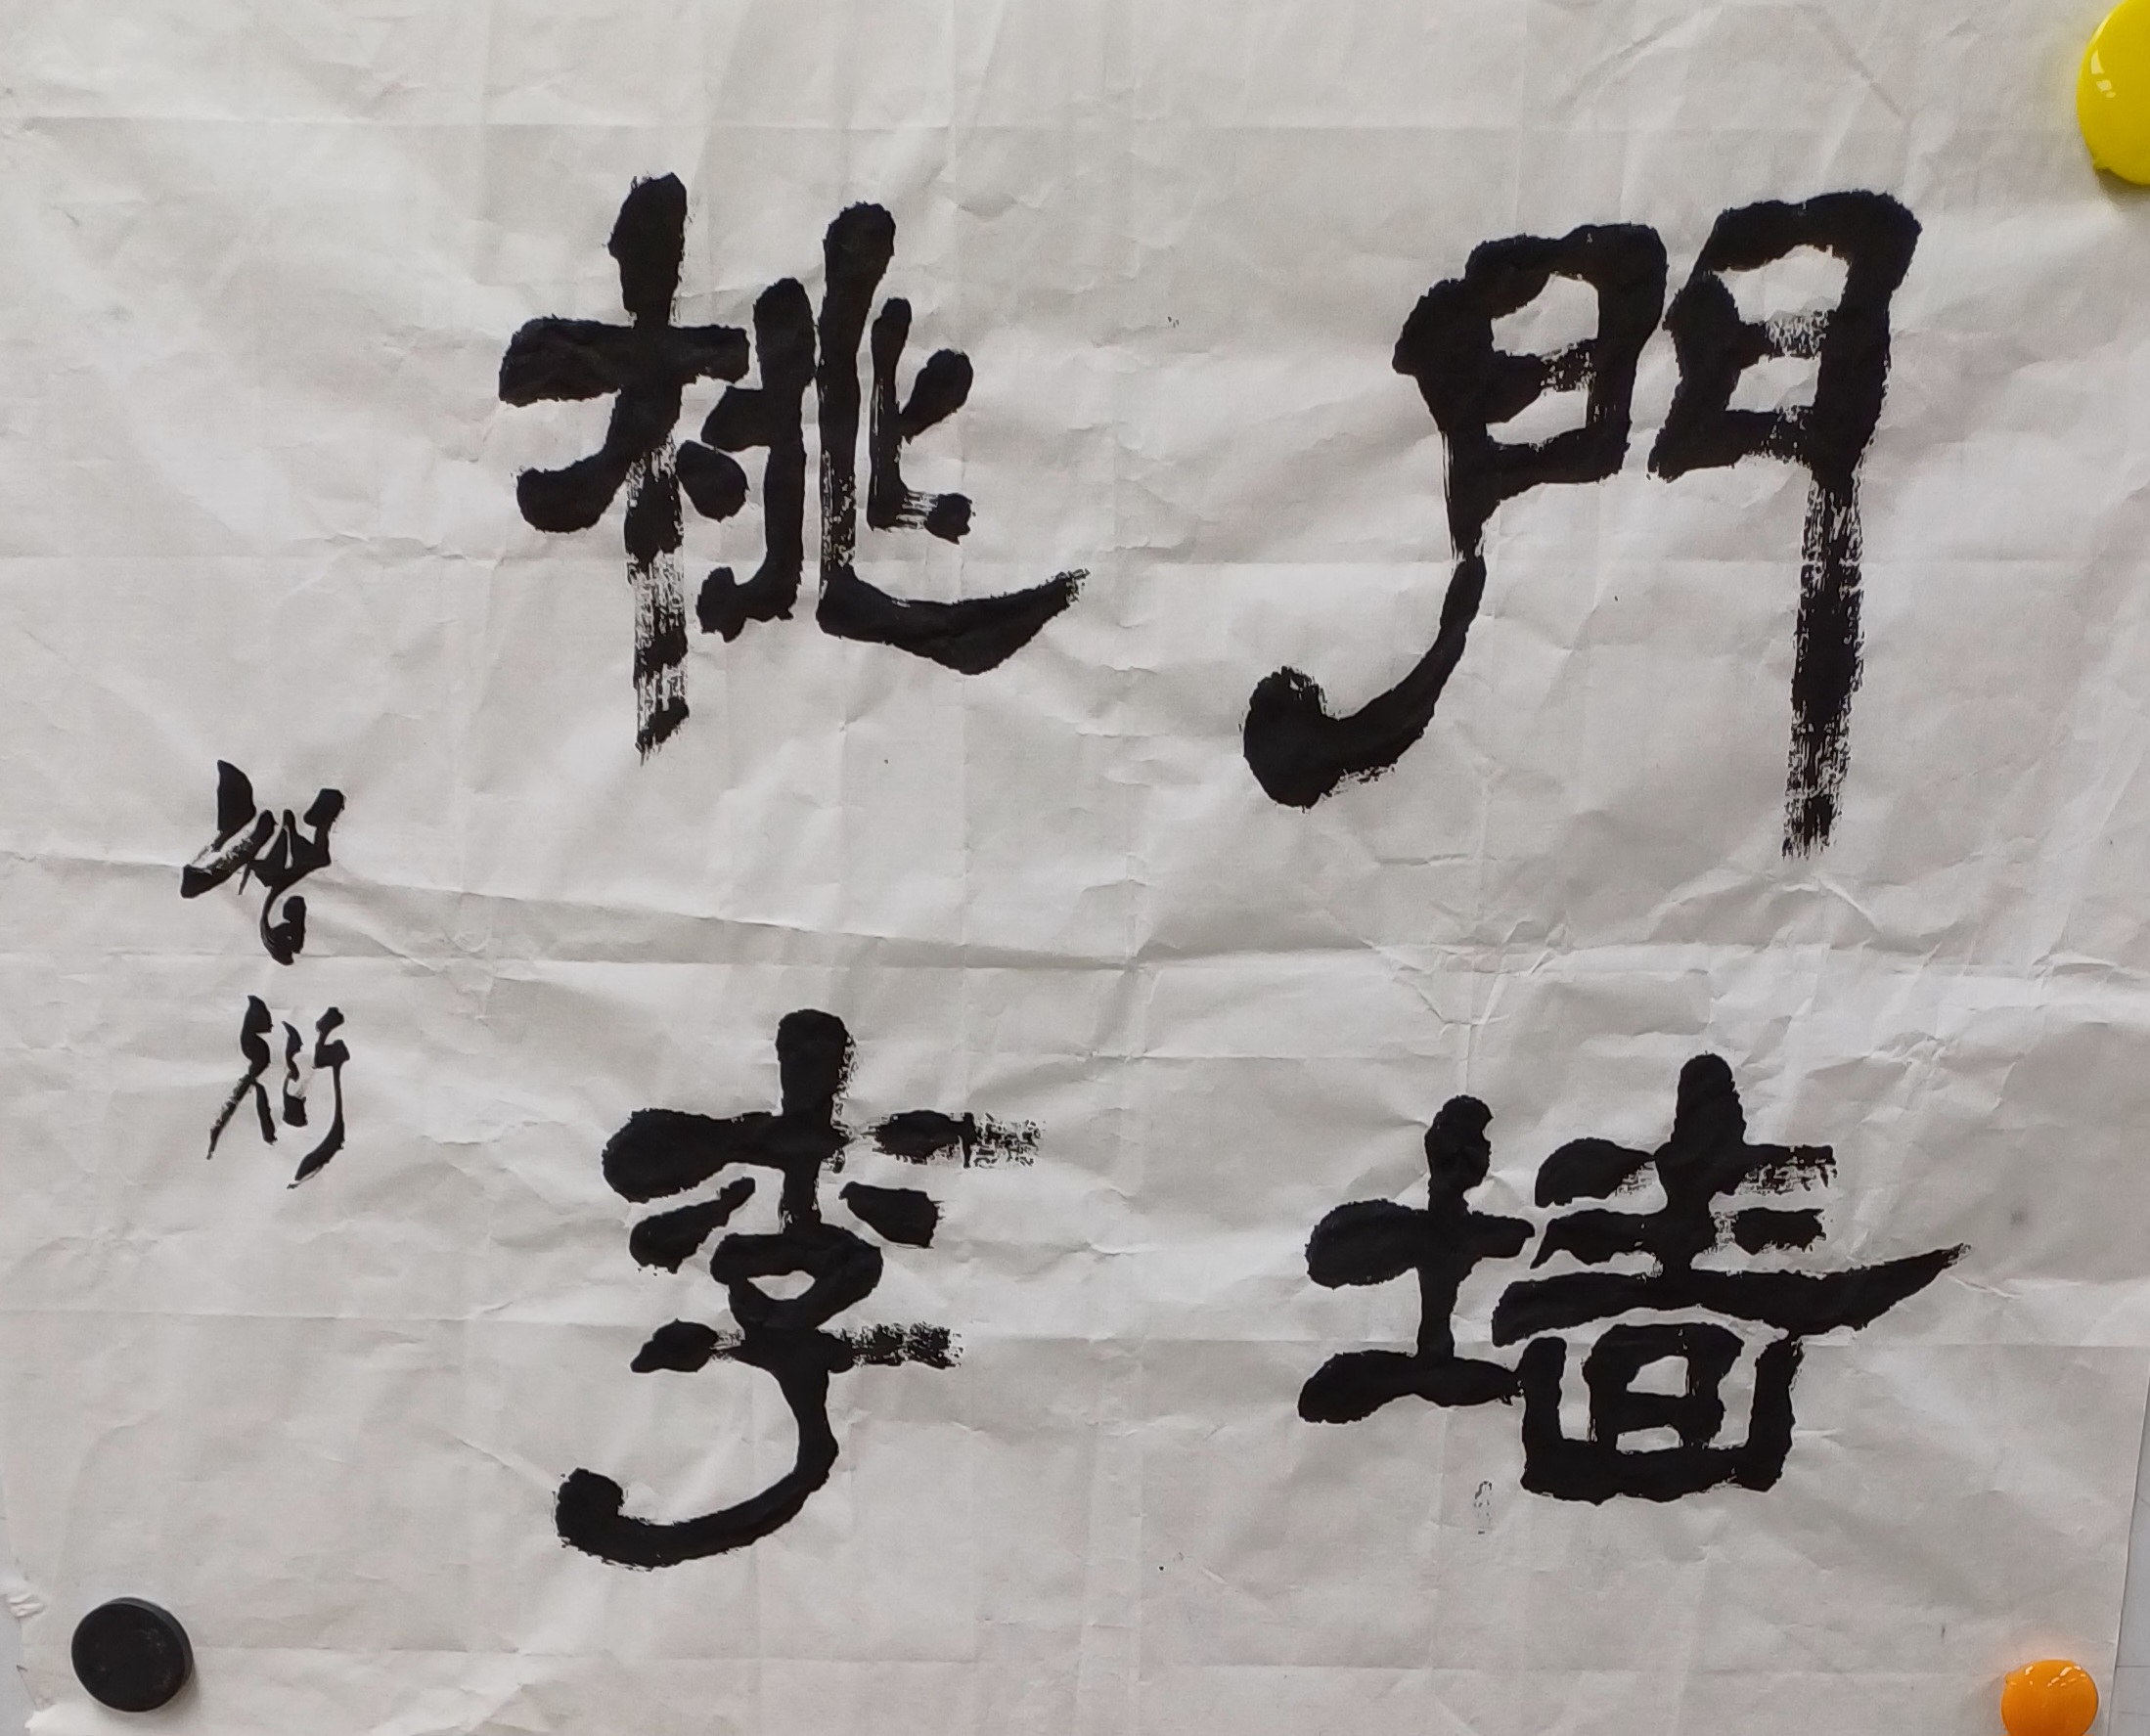 門墙
桃李
智衍